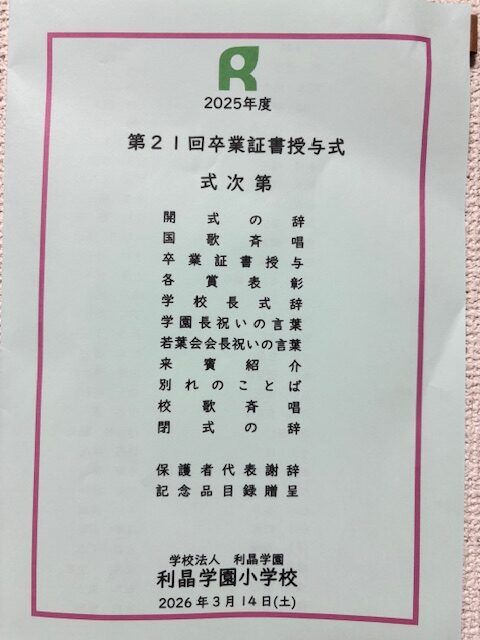 2025年度
第21回卒業証書授与式
式次第
開式の辞
国歌斉唱
卒業証書授与
各賞表彰
学校長式辞
学園長祝いの言葉
若葉会会長祝いの言葉
来賓紹介
別れのことば
校歌斉唱
閉式の辞
保護者代表謝辞
記念品目録贈呈
学校法人 利晶学園
利晶学園小学校
2026年3月14日(土)